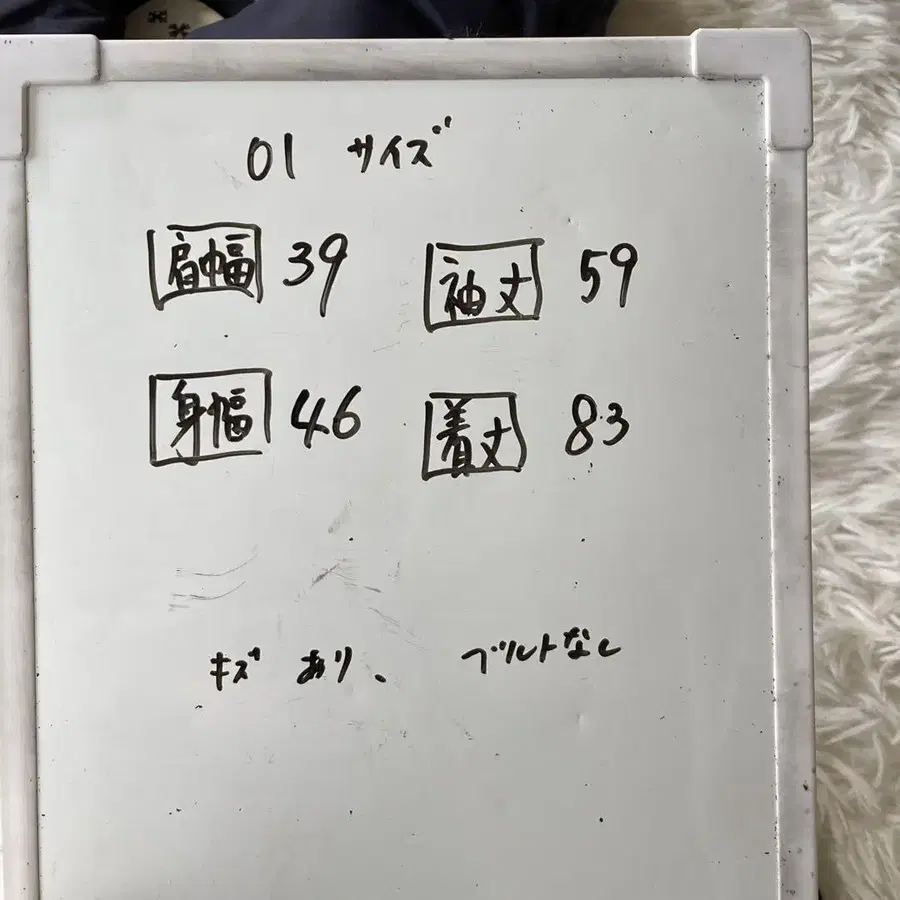 01 サイズ
肩幅 39 袖丈 59
身幅 46 着丈 83
キズ あり、 ベルトなし